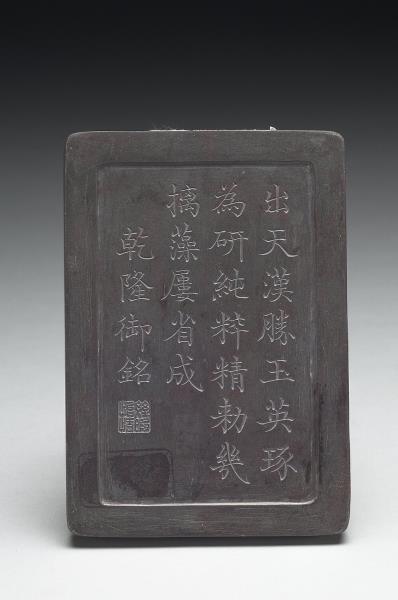 出天漢勝玉英琢
為研純粹精勅幾
摛藻屢省成
乾隆御銘